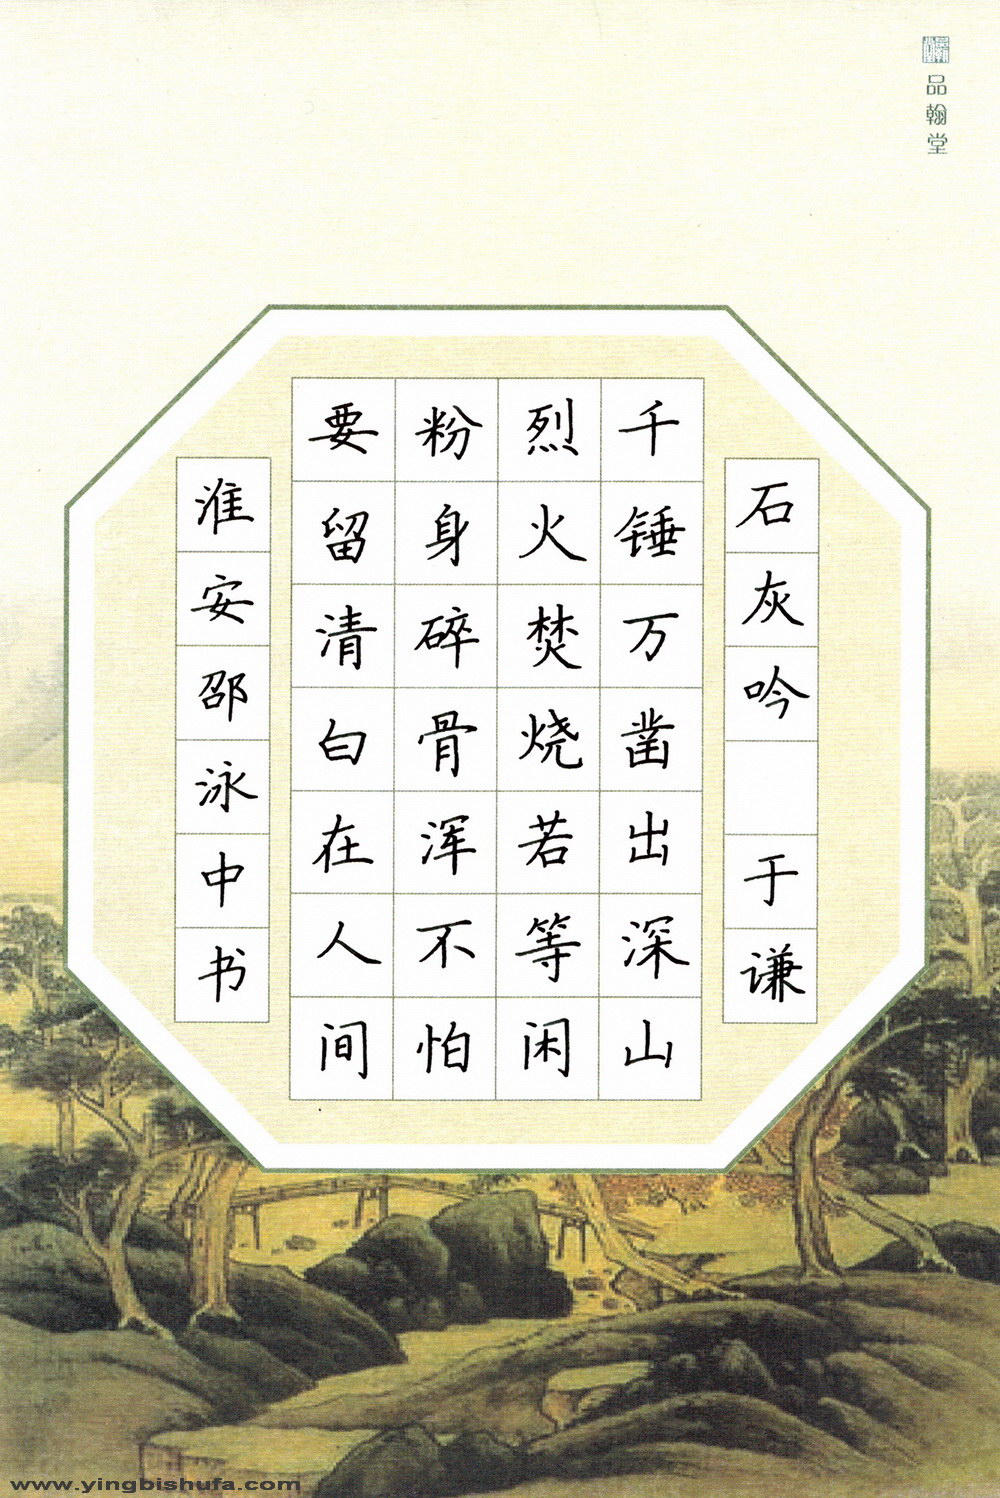 品翰堂
石灰吟 于谦
千锤万凿出深山
烈火焚烧若等闲
粉身碎骨浑不怕
要留清白在人间
淮安邵泳中书
www.yingbishufa.com